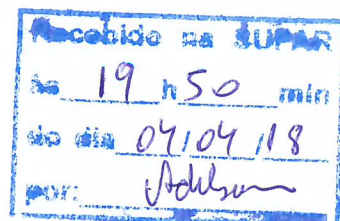 Recebido na SUPAR
às 19 h 50 min
do dia 04/04/18
por: